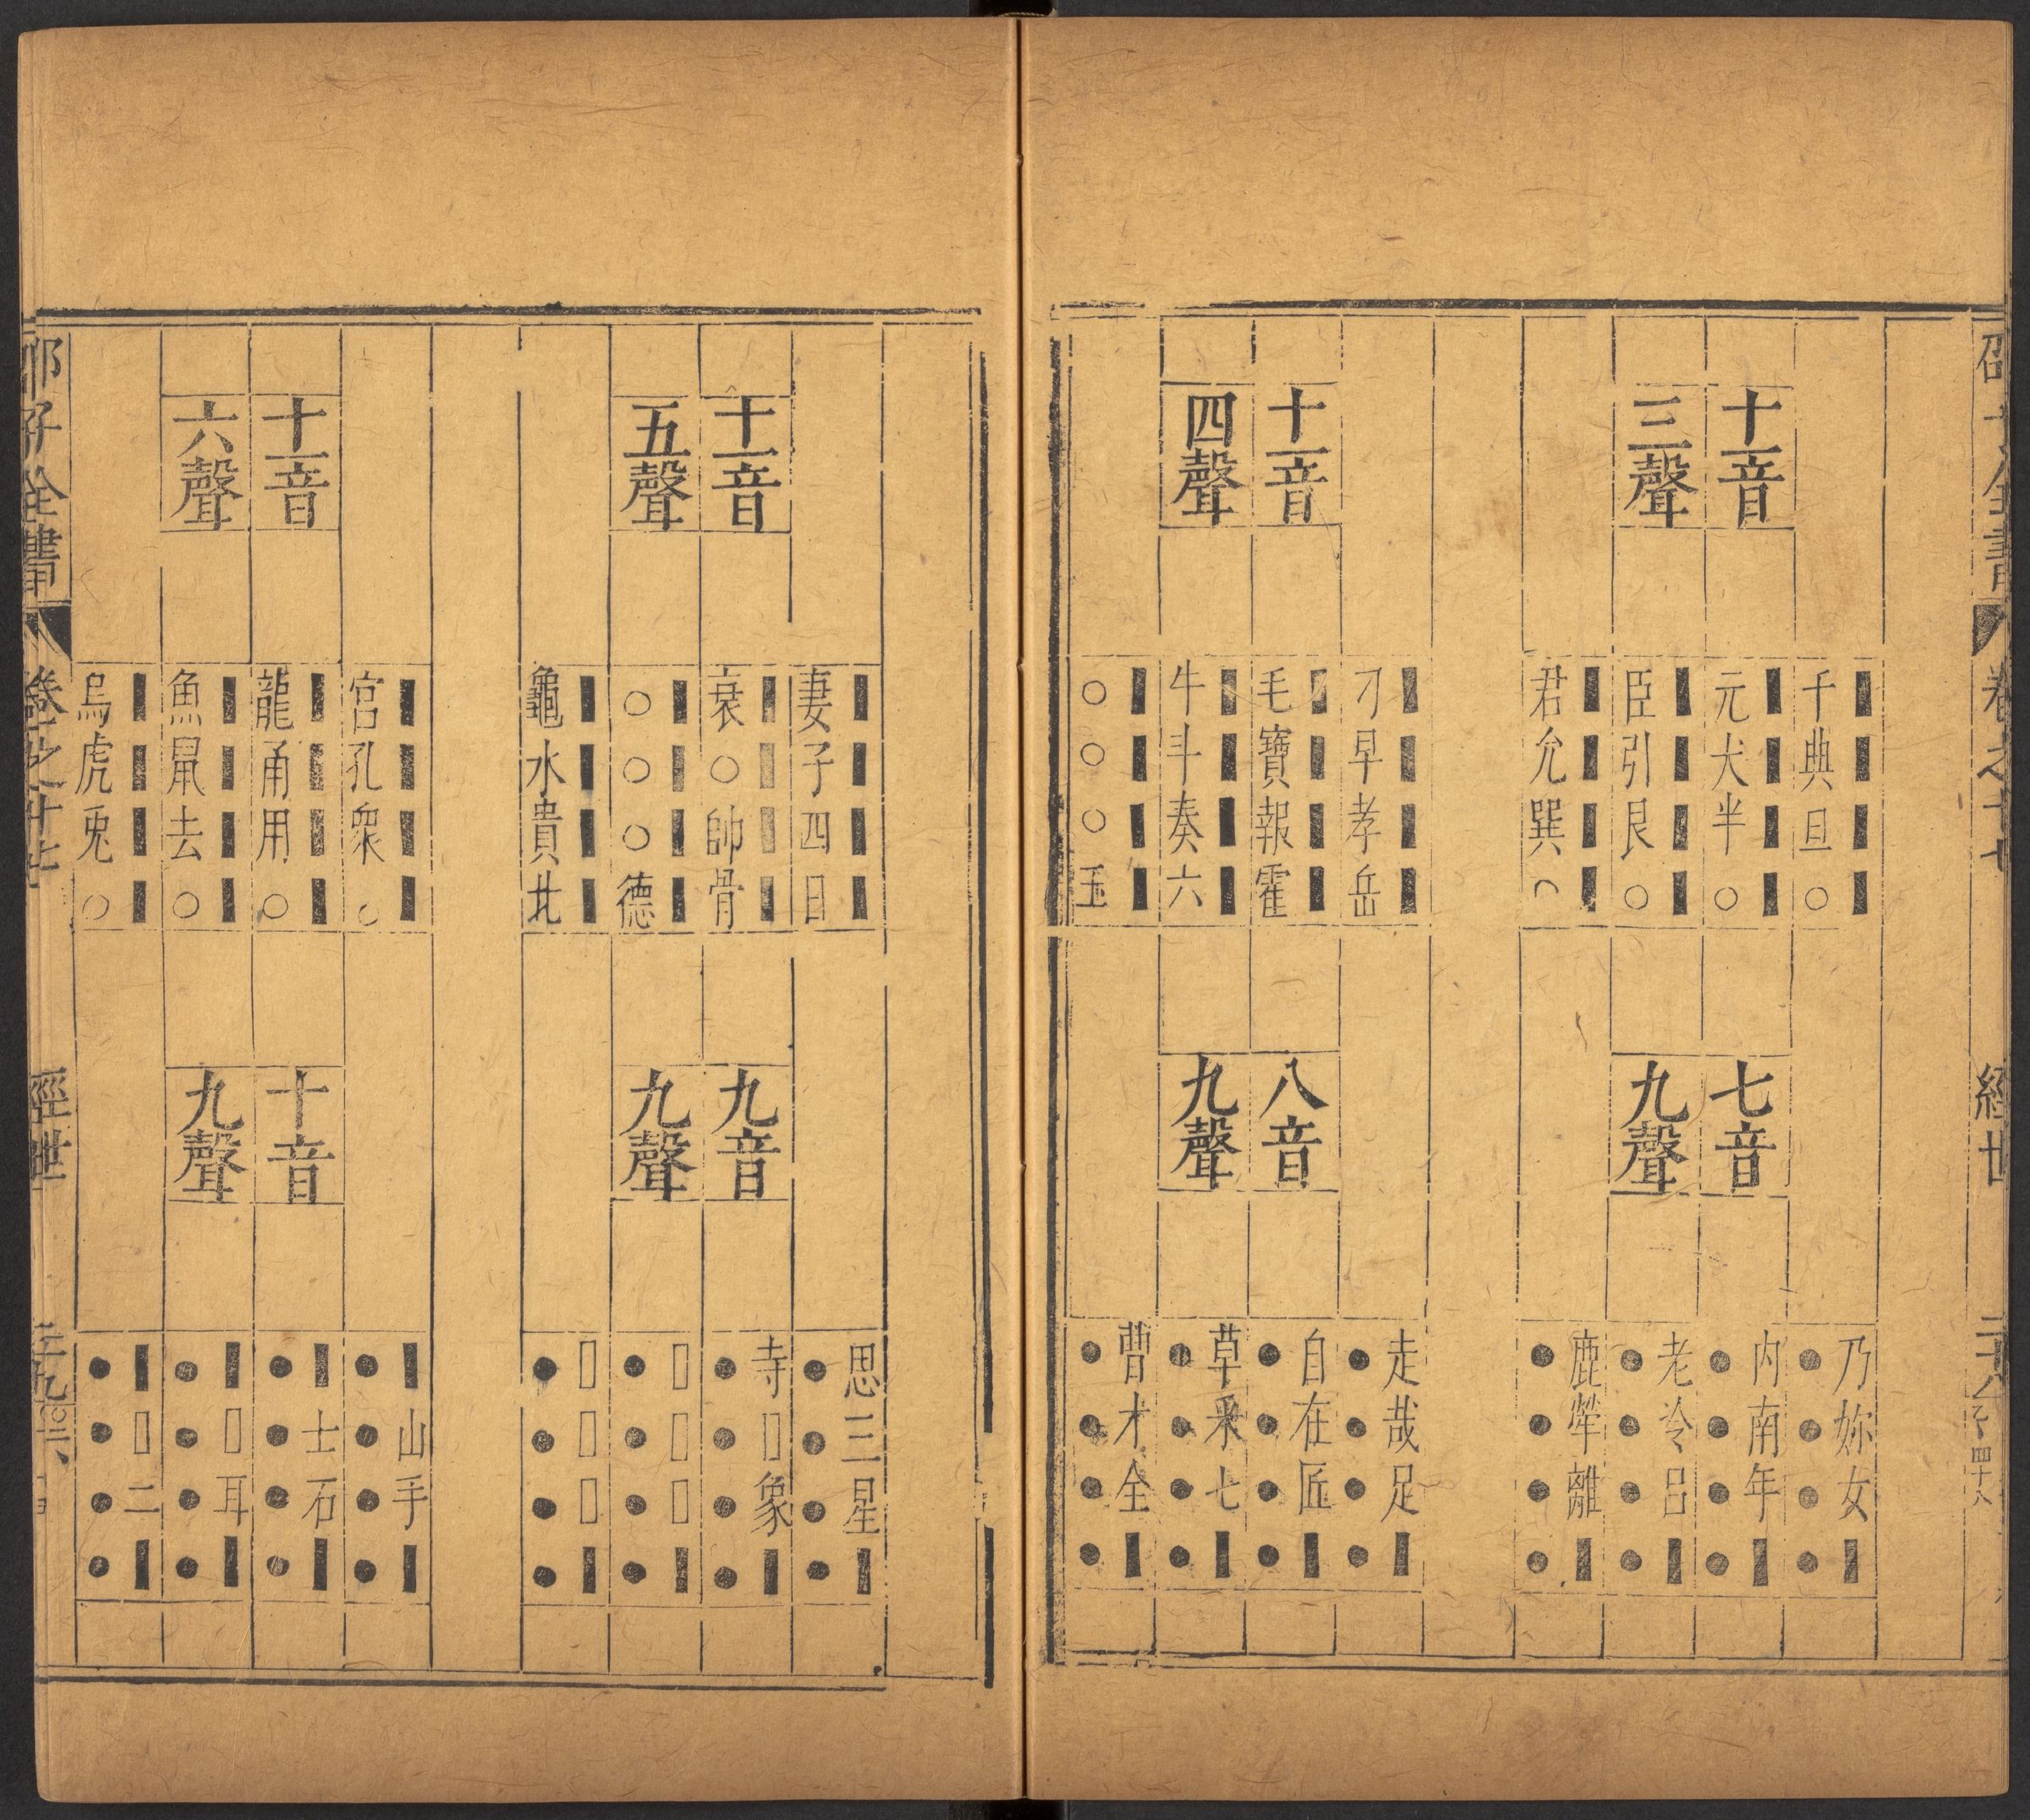 邵子全書
卷之十七
經世
十一音
三聲
千典旦○
元犬半○
臣引艮○
君允巽○
七音
九聲
乃妳女
內南年
老冷呂
鹿犖離
十一音
四聲
刀早孝岳
毛寶報霍
牛斗奏六
○○○玉
八音
九聲
走哉足
自在匠
草采七
曹才全
十一音
五聲
妻子四日
衰○帥骨
○○○德
龜水貴北
九音
九聲
思三星
寺□象
□□□
□□□
十一音
六聲
宮孔衆○
龍甬用○
魚鼠去○
烏虎兎○
十音
九聲
山手
士石
□耳
□二
邵子全書
卷之十七
經世